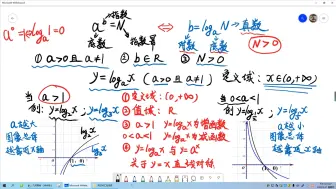 指数
a^b=N ⇔ b=log_a N→真数
a^0=1⇔log_a 1=0
底数 指数幂 对数 底数 N>0
① a>0且a≠1 ② b∈R ③ N>0
y=log_a x (a>0且a≠1) 定义域: x∈(0,+∞)
当 a>1
① 定义域: (0,+∞)
② 值域: R
③ a>1 y=log_a x 为增函数
0<a<1 y=log_a x 为减函数
④ y=log_a x 与 y=a^x
关于 y=x 直线对称
a越大
图象总体
越靠近x轴
(1,0)
当 0<a<1
a越小
图象总体
越靠近x轴
(1,0)